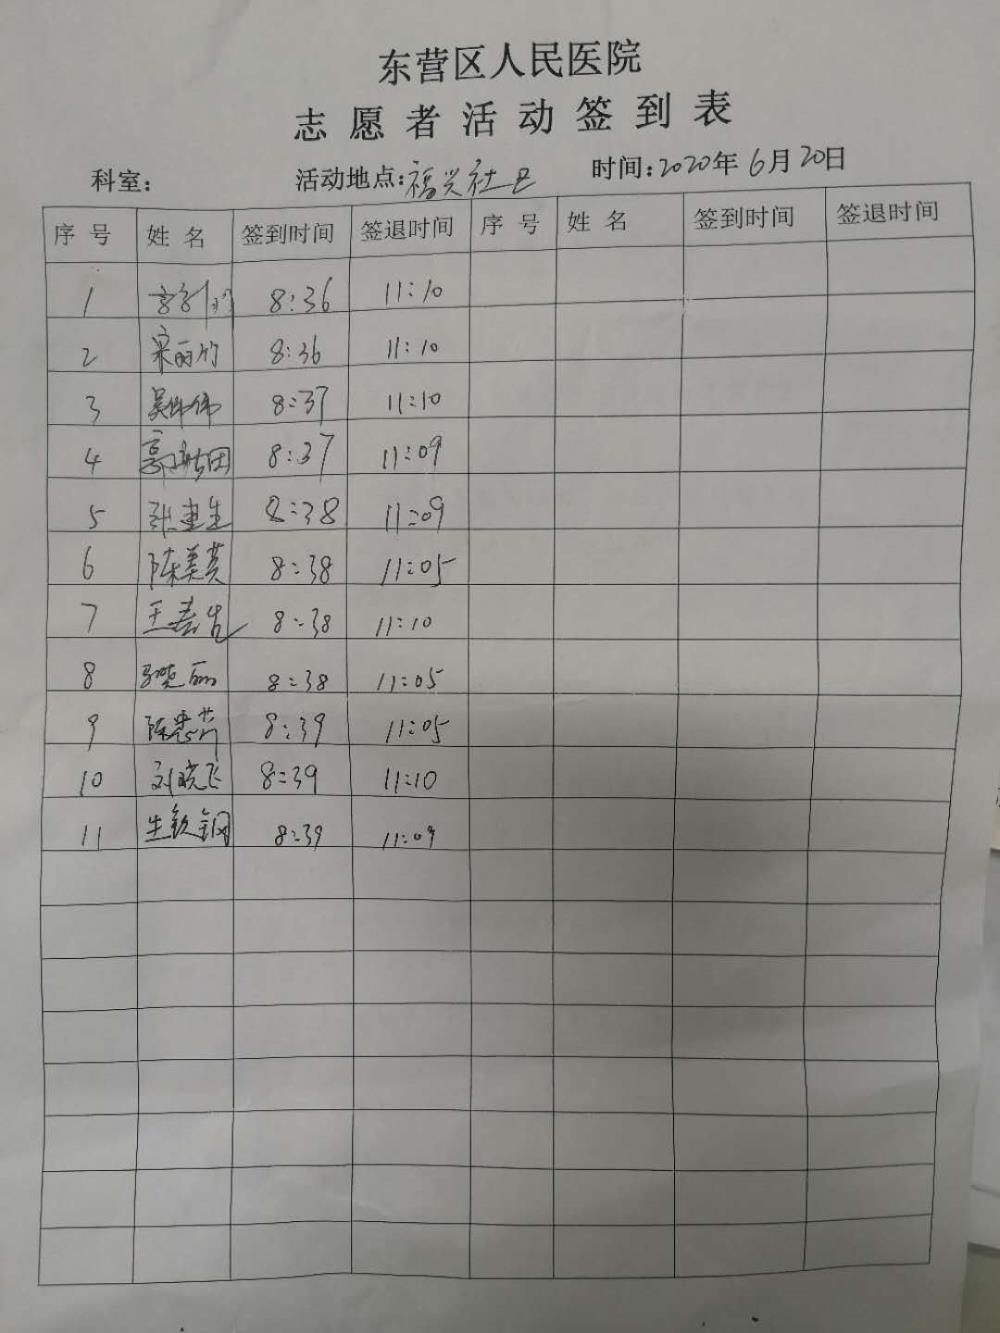 东营区人民医院
志愿者活动签到表
科室： 活动地点:福兴社区 时间:2020年6月20日
序号 姓名 签到时间 签退时间 序号 姓名 签到时间 签退时间
1 8:36 11:10
2 宋丽竹 8:36 11:10
3 8:37 11:10
4 8:37 11:09
5 张建生 8:38 11:09
6 陈美英 8:38 11:05
7 8:38 11:10
8 8:38 11:05
9 8:39 11:05
10 刘晓飞 8:39 11:10
11 生铁钢 8:39 11:09